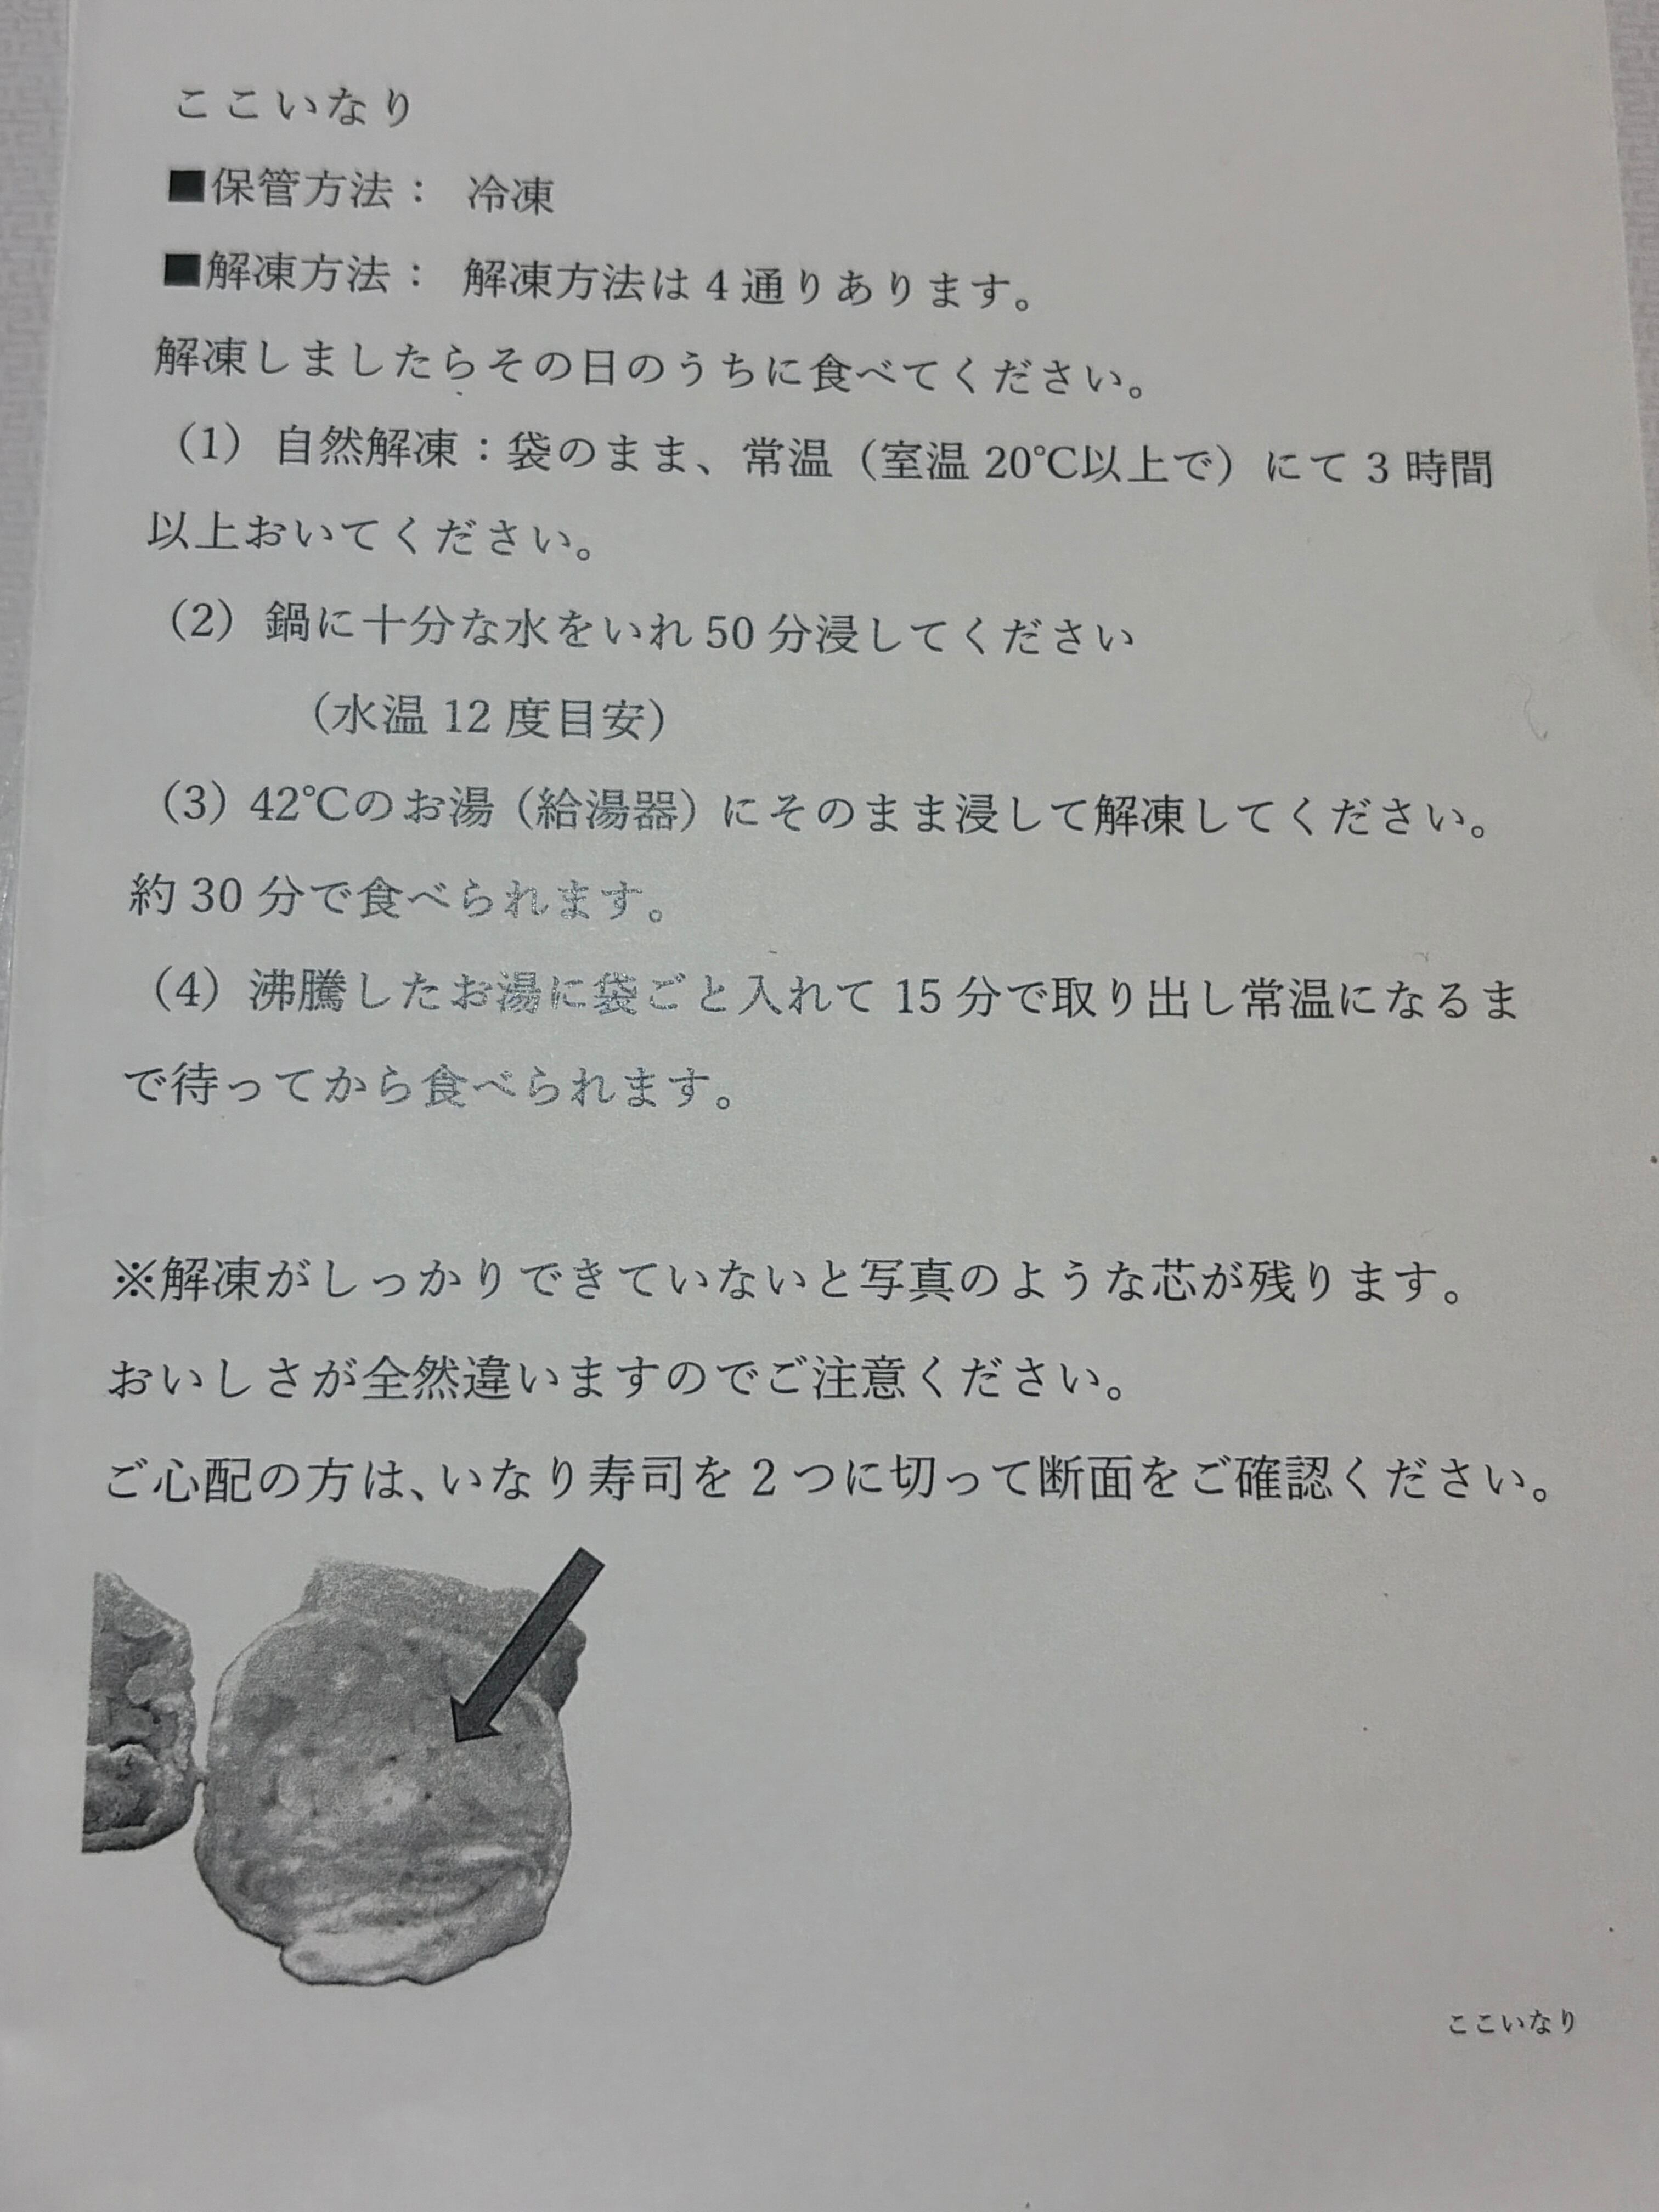 ここいなり
■保管方法： 冷凍
■解凍方法： 解凍方法は 4 通りあります。
解凍しましたらその日のうちに食べてください。
（1）自然解凍：袋のまま、常温（室温 20℃以上で）にて 3 時間
以上おいてください。
（2）鍋に十分な水をいれ 50 分浸してください
（水温 12 度目安）
（3）42℃のお湯（給湯器）にそのまま浸して解凍してください。
約 30 分で食べられます。
（4）沸騰したお湯に袋ごと入れて 15 分で取り出し常温になるま
で待ってから食べられます。
※解凍がしっかりできていないと写真のような芯が残ります。
おいしさが全然違いますのでご注意ください。
ご心配の方は、いなり寿司を 2 つに切って断面をご確認ください。
ここいなり